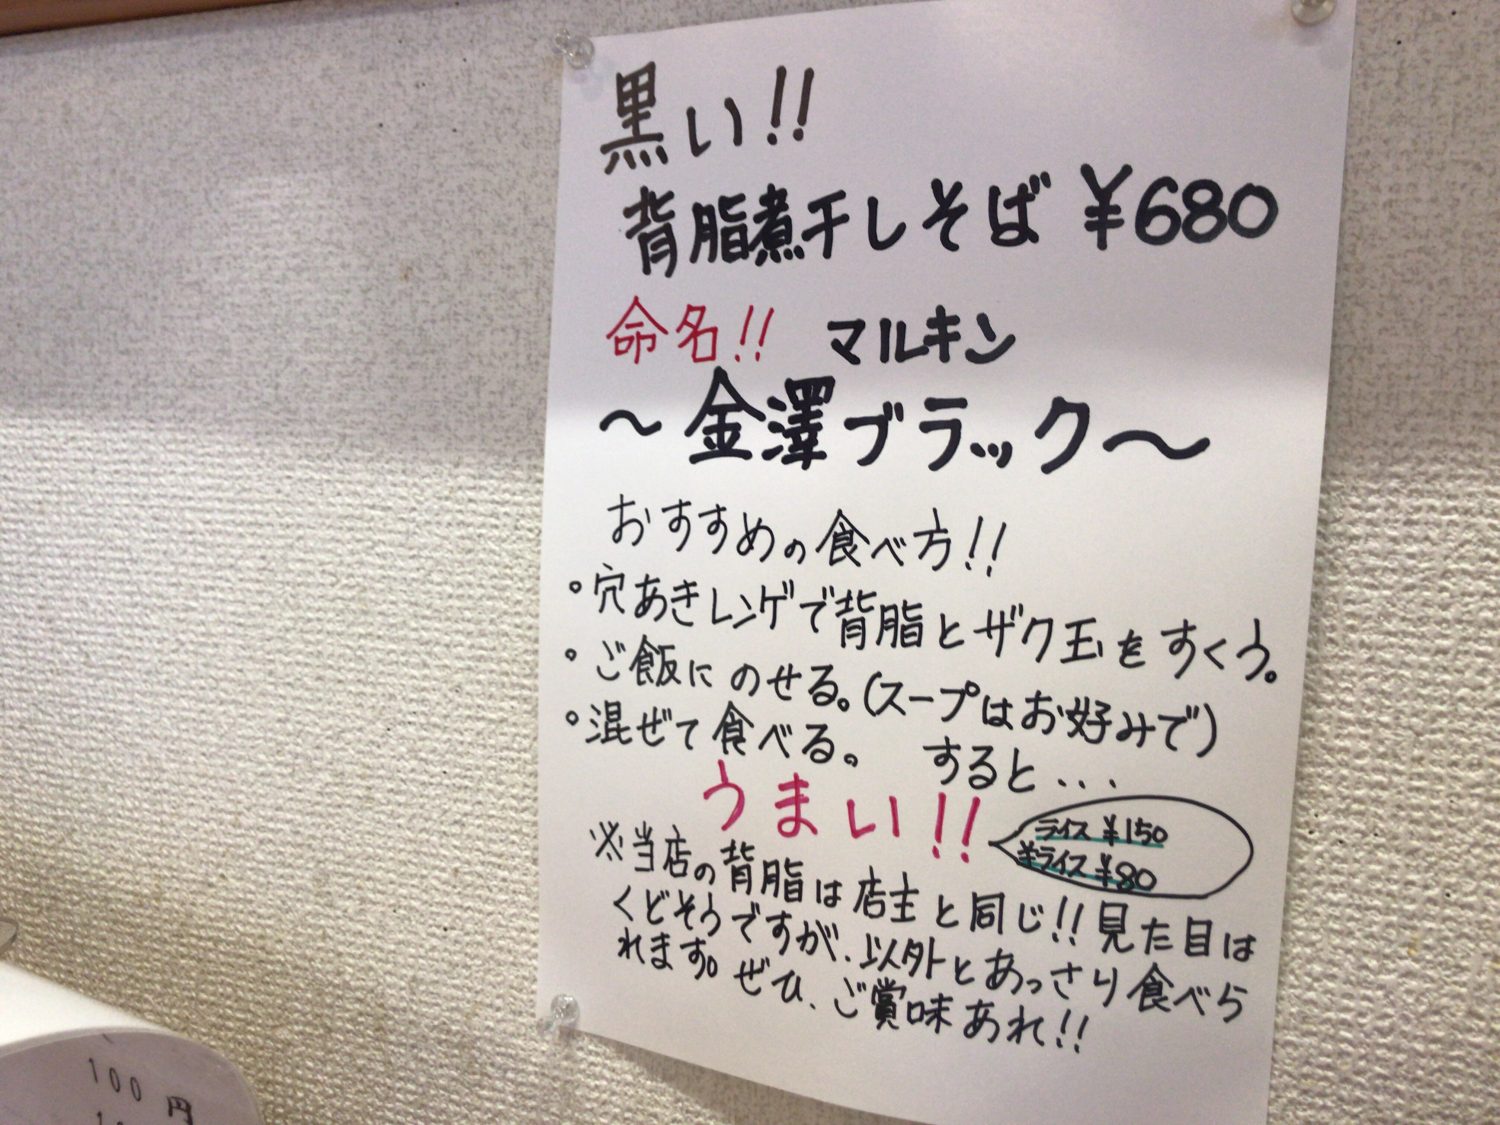 黒い!!
背脂煮干しそば ¥680
命名!! マルキン
～金澤ブラック～
おすすめの食べ方!!
。穴あきレンゲで背脂とザク玉をすくう。
。ご飯にのせる。(スープはお好みで)
。混ぜて食べる。 すると...
うまい!!
ライス ¥150
半ライス ¥80
※当店の背脂は店主と同じ!!見た目は
くどそうですが、以外とあっさり食べら
れます。ぜひ、ご賞味あれ!!
100 円